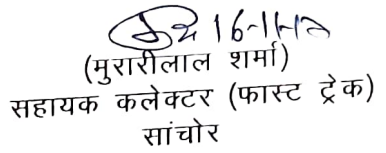 16-11-17
(मुरारीलाल शर्मा)
सहायक कलेक्टर (फास्ट ट्रेक)
सांचोर